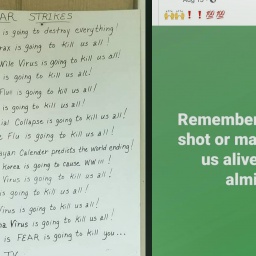 AR STRIKES
is going to destroy everything!
rax is going to kill us all!
Nile Virus is going to kill us all!
is going to kill us all!
Flu is going to kill us all!
is going to kill us all!
ial Collapse is going to kill us all!
e Flu is going to kill us all!
ayan Calender predicts the world ending!
Korea is going to cause WW III!
Virus is going to kill us all!
is going to kill us all!
Virus is going to kill us all!
a Virus is going to kill us all!
is FEAR is going to kill you...
TV
Aug 15
Remember
shot or ma
us alive
almi